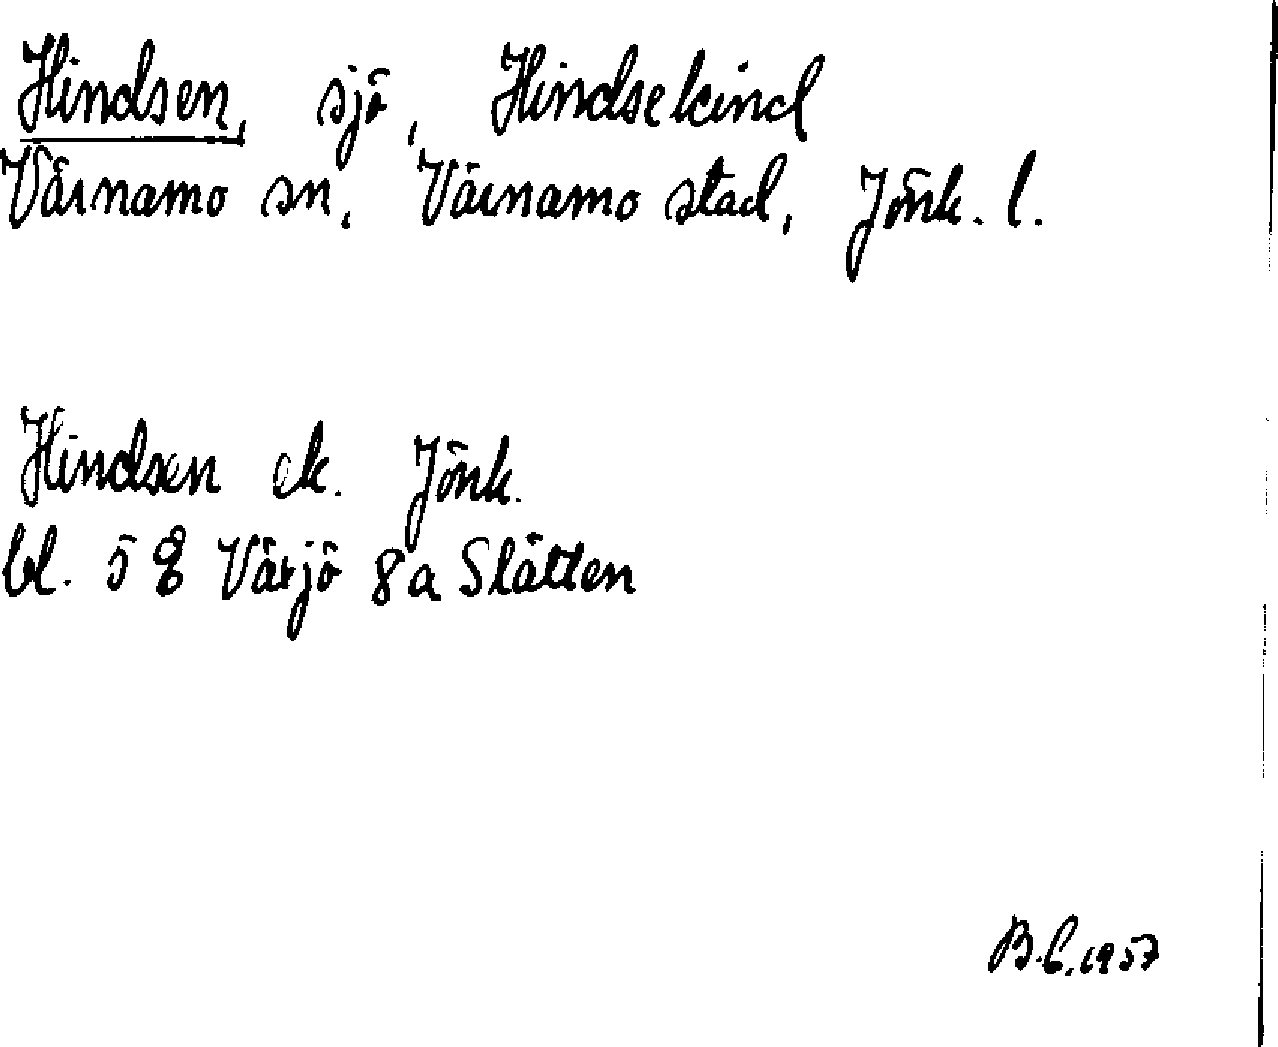 Hindsen, sjö, Hindsekind
Värnamo sn, Värnamo stad, Jönk. l.
Hindsen ek. Jönk.
bl. 5 8 Värjö 8a Slätten
B.C. 1957